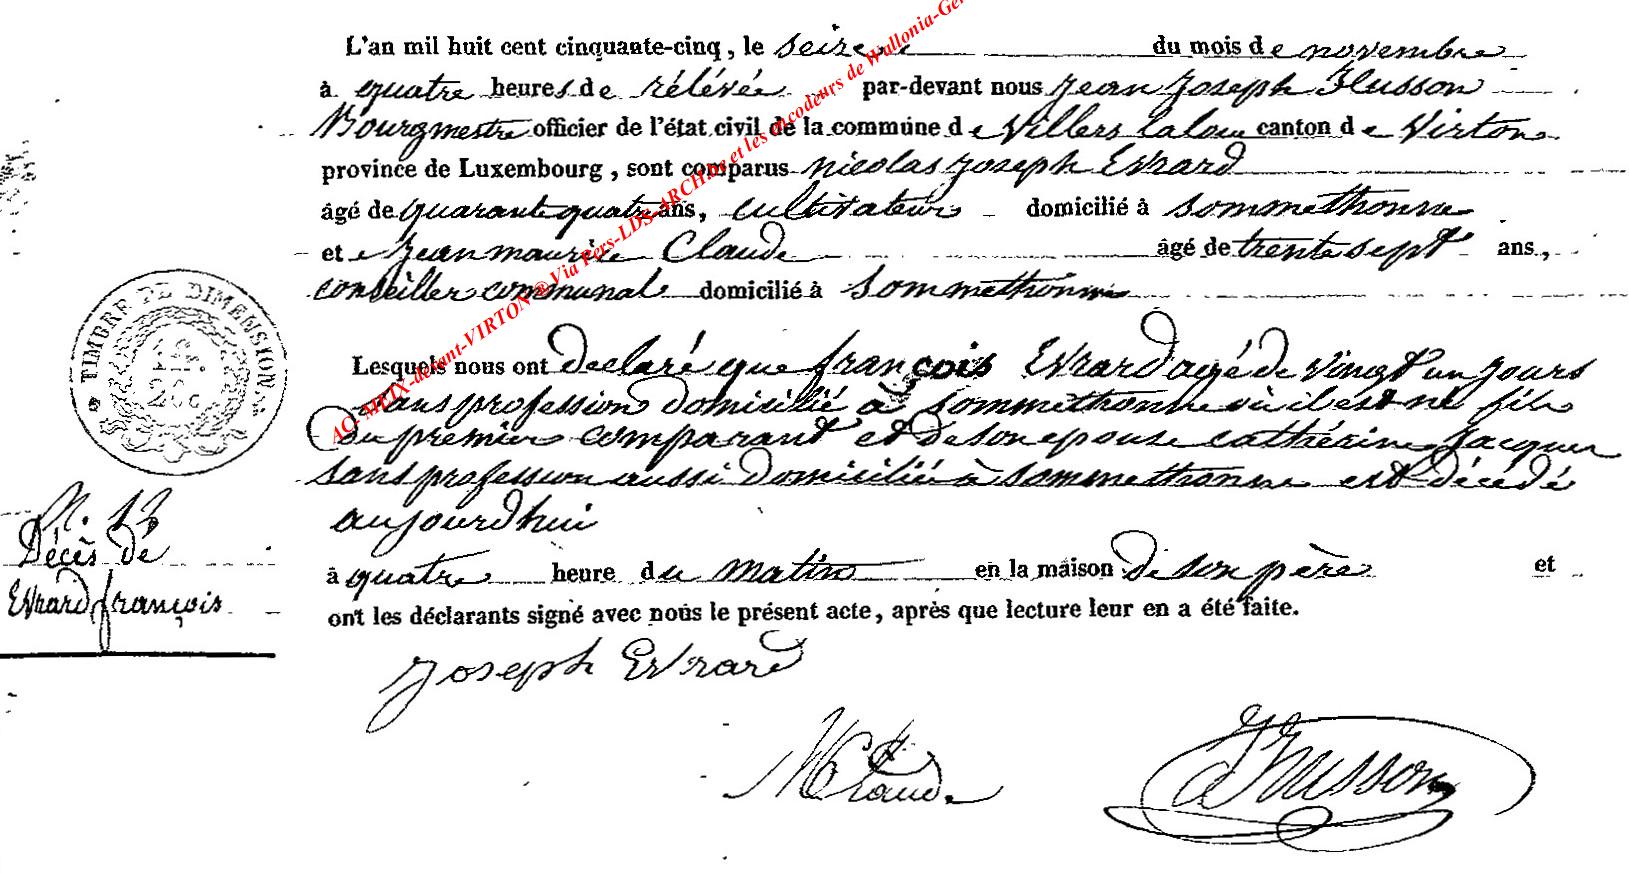 L'an mil huit cent cinquante-cinq, le seize du mois de novembre
à quatre heures de rélévée par-devant nous Jean Joseph Husson
Bourgmestre officier de l'état civil de la commune de Villers laloue canton de Virton
province de Luxembourg, sont comparus nicolas Joseph Evrard
âgé de quarante quatre ans, cultivateur domicilié à Sommethonne
et Jean maurice Claude âgé de trente sept ans,
conseiller communal domicilié à Sommethonne
TIMBRE DE DIMENSION
Lesquels nous ont déclaré que françois Evrard agé de vingt un jours
sans profession domicilié à Sommethonne où il est né fils
Du premier comparant et de son epouse cathérine Jacques
sans profession aussi domiciliée à Sommethonne est décédé
aujourdhui
à quatre heure du matin en la maison de son père et
ont les déclarants signé avec nous le présent acte, après que lecture leur en a été faite.
N. 13
Décès de
Evrard françois
Joseph Evrard
M Claude
JJHusson
AC-MEIX-devant-VIRTON ® Via Pers-LDS-ARCH.be et les encodeurs de Wallonia-Gen